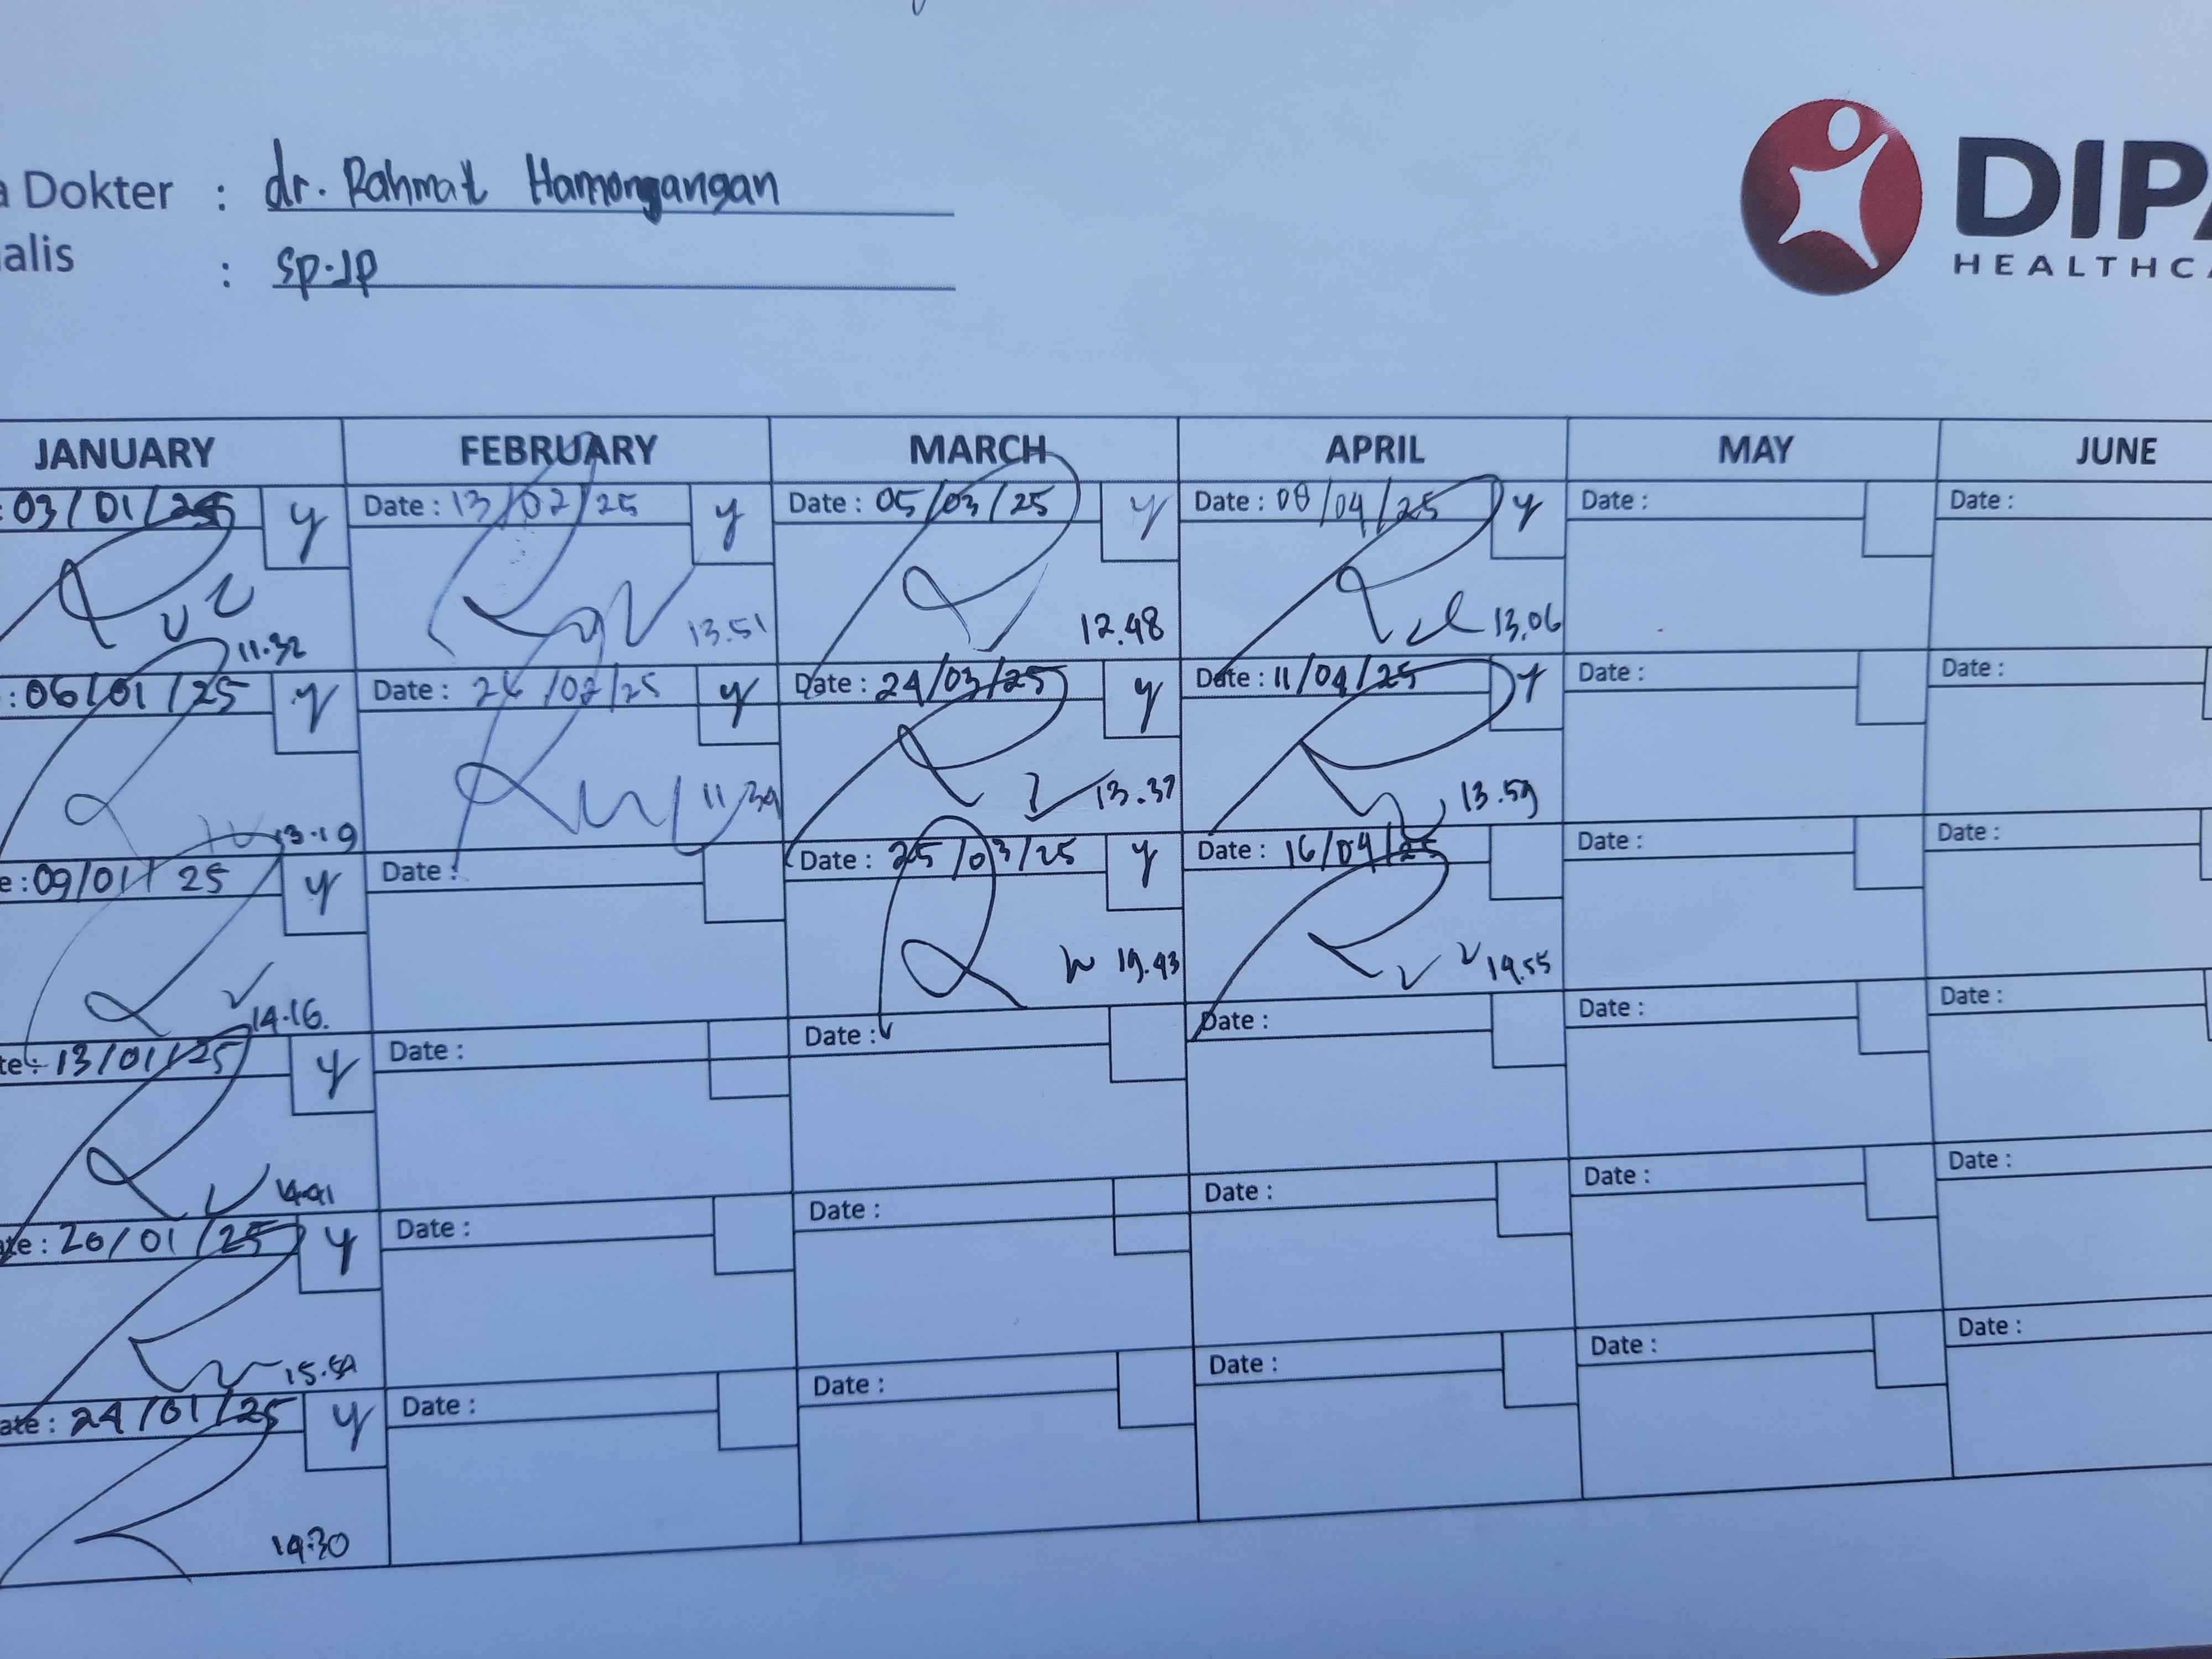 a Dokter : dr. Rahmat Hamongangan
alis : Sp.JP
DIPA
HEALTHCA
JANUARY FEBRUARY MARCH APRIL MAY JUNE
: 03/01/25 y Date : 13/02/25 y Date : 05/03/25 y Date : 08/04/25 y Date : Date :
11.32 13.51 12.48 13.06
: 06/01/25 y Date : 24/02/25 y Date : 24/03/25 y Date : 11/04/25 y Date : Date :
13.19 11.34 13.37 13.59
e : 09/01/25 y Date : Date : 25/03/25 y Date : 16/04/25 Date : Date :
14.16. 19.43 14.55
te : 13/01/25 y Date : Date : Date : Date : Date :
14.41
ate : 20/01/25 y Date : Date : Date : Date : Date :
15.54
ate : 24/01/25 y Date : Date : Date : Date : Date :
14.30